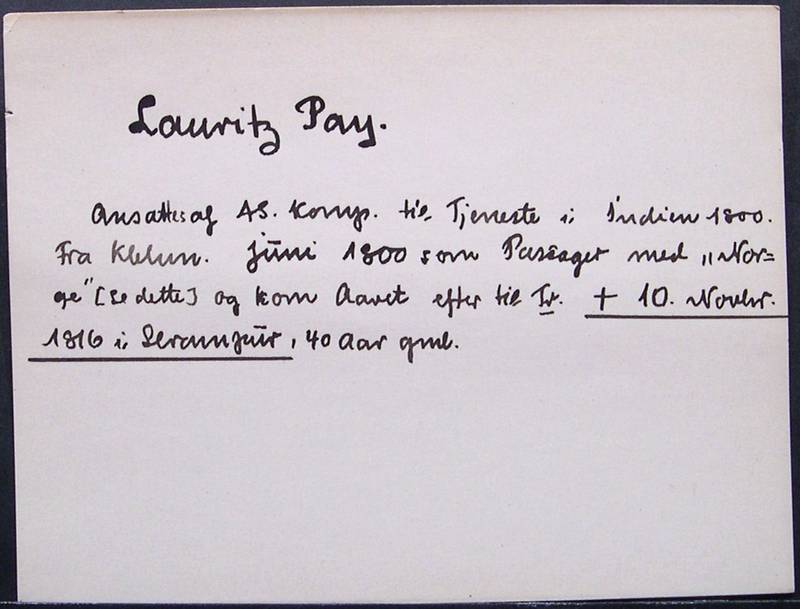 Lauritz Pay.
Ansattes af AS. Komp. til Tjeneste i Indien 1800.
Fra Kbhvn. Juni 1800 som Passager med „Nor=
ge" [se dette] og kom Aaret efter til Tr. + 10. Novbr.
1816 i Serampur, 40 Aar gml.